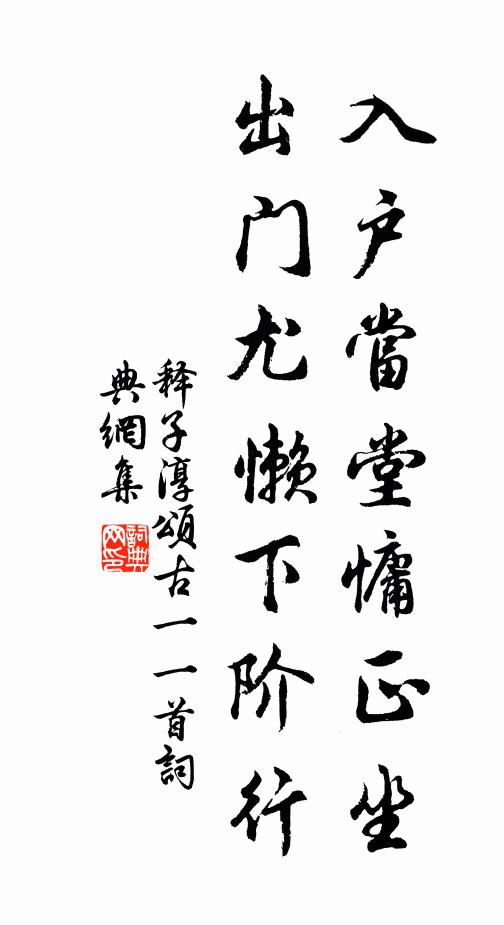 入户當堂慵正坐
出门尤懒下阶行
释子淳頌古一一首詞
典網集
詞典
网印